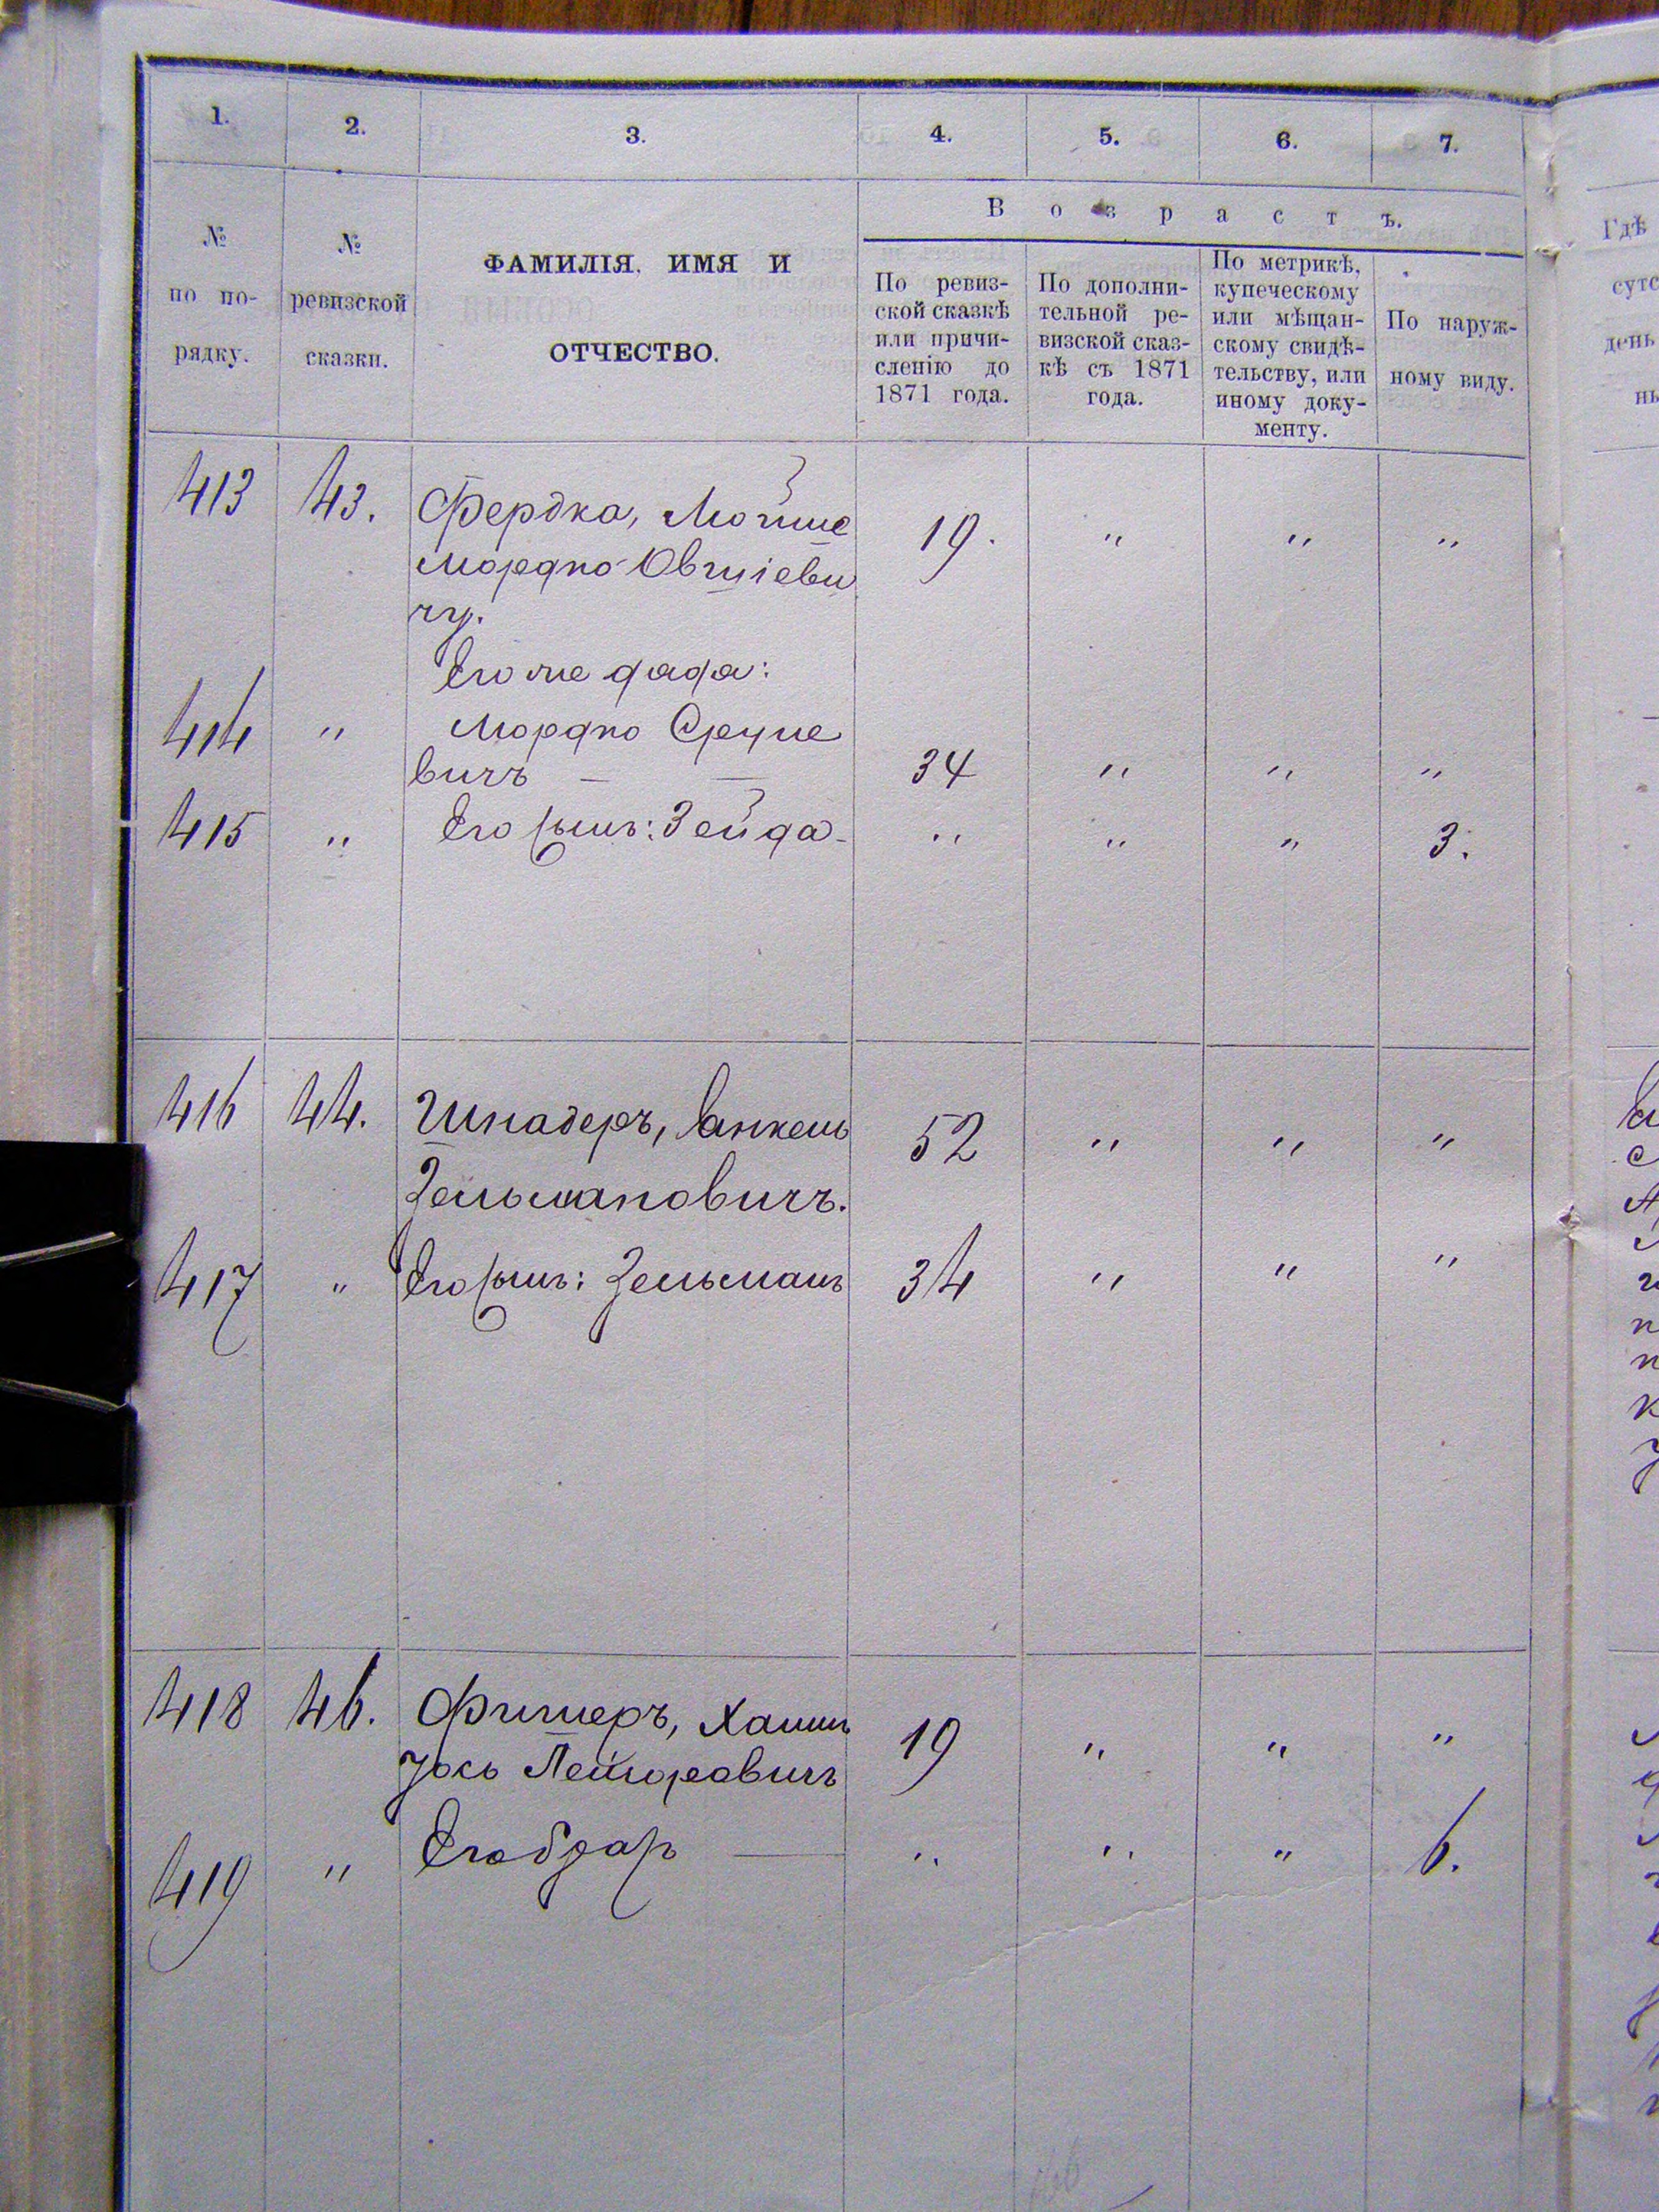 1.	2.	3.	4.	5.	6.	7.
В о з р а с т ъ.
№
по по-
рядку.
№
ревизской
сказки.
ФАМИЛІЯ, ИМЯ И
ОТЧЕСТВО.
По ревиз-
ской сказкѣ
или причи-
сленію до
1871 года.
По дополни-
тельной ре-
визской сказ-
кѣ съ 1871
года.
По метрикѣ,
купеческому
или мѣщан-
скому свидѣ-
тельству, или
иному доку-
менту.
По наруж-
ному виду.
Гдѣ
день
413 43. Фердка, Мойше 19. " " "
Мордко Овшіеви
чу.
Его же дядя:
414 " Мордко
вичъ — — 34 " " "
415 " Его сынъ: Зейда - " " " 3.
416 44. Шнадеръ, Янкель 52 " " "
Зельмановичъ.
417 " Его сынъ: Зельманъ 34 " " "
418 46. Фишеръ, Хаимъ 19 " " "
Іось Лейзоровичъ
419 " Его братъ — " " " 6.